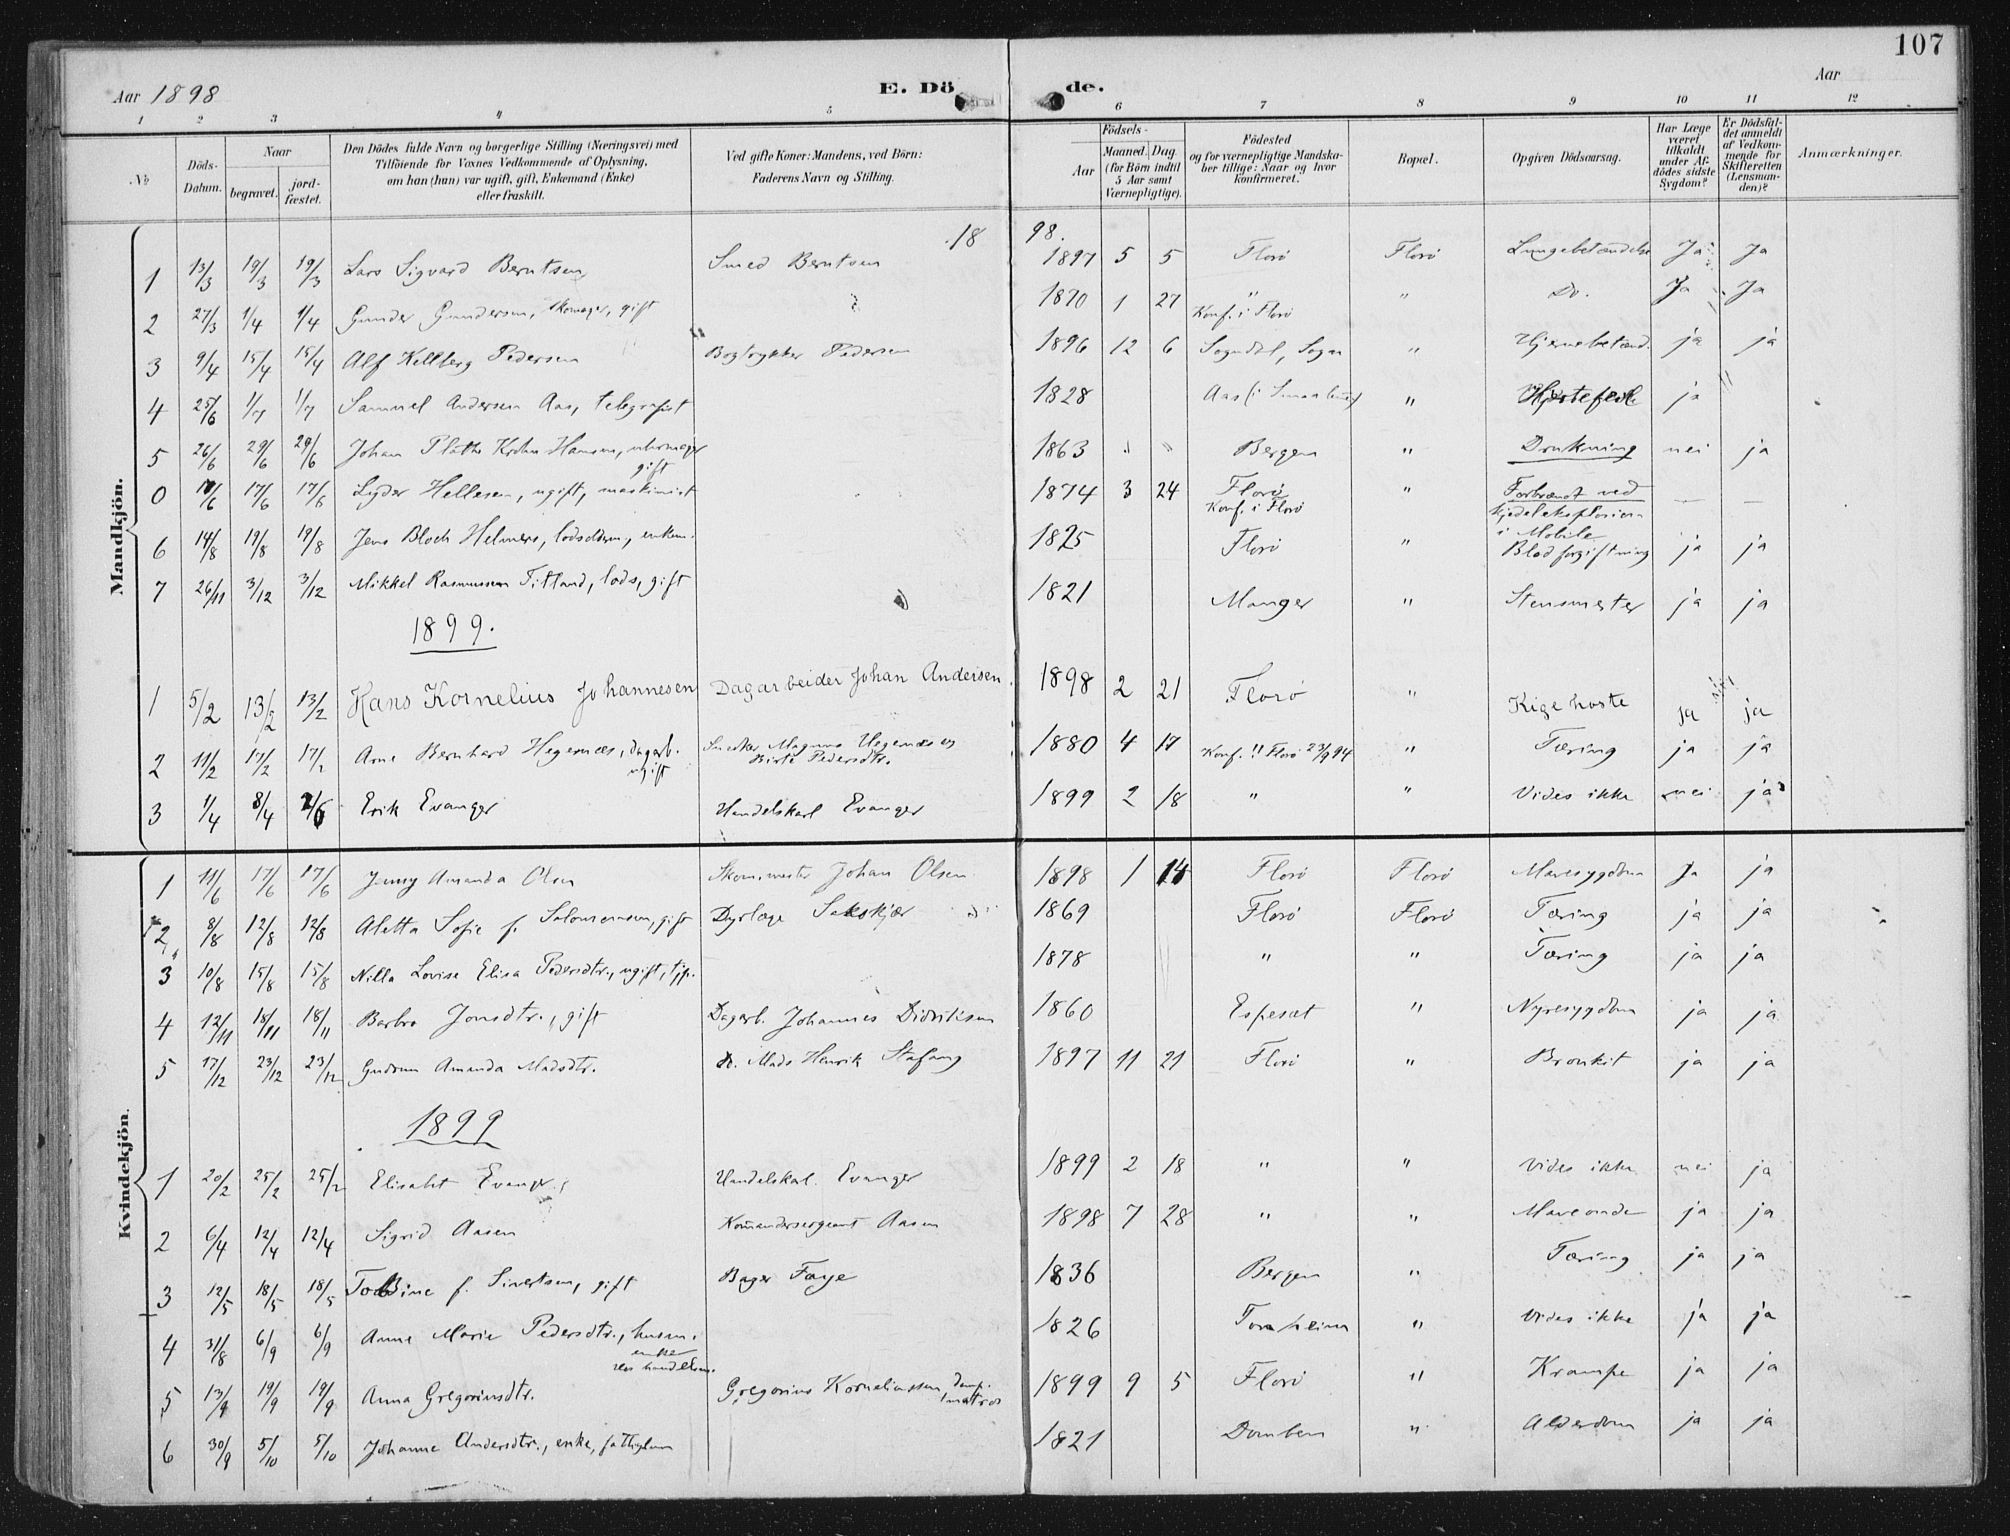 107
Aar 1898 E. Dö de. Aar
1 2 3 4 5 6 7 8 9 10 11 12
No
Döds-Datum.
Naar begravet. jord-fæstet.
Den Dödes fulde Navn og borgerlige Stilling (Næringsvei) med Tilföiende for Voxnes Vedkommende af Oplysning, om han (hun) var ugift, gift, Enkemand (Enke) eller fraskilt.
Ved gifte Koner: Mandens, ved Börn: Faderens Navn og Stilling.
Födsels- Aar Maaned. Dag (for Börn indtil 5 Aar samt Værnepligtige).
Födested og for værnepligtige Mandska-ber tillige: Naar og hvor konfirmeret.
Bopæl.
Opgiven Dödsaarsag.
Har Læge været tilkaldt under Af-dödes sidste Sygdom?
Er Dödsfal-det anmeldt af Vedkom-mende for Skifteretten (Lensman-den)?
Anmærkninger.
Mandkjön.
18 98.
1 13/3 19/3 19/3 Lars Sigvard Berntsen Smed Berntsen 1897 5 5 Florö Florö Lungebetændelse Ja Ja
2 27/3 1/4 1/4 Gunder Gundersen, skomager, gift 1870 1 27 " Konf. i Florö " Do. Ja Ja
3 9/4 15/4 15/4 Alf Kellberg Pedersen Bogtrykker Pedersen 1896 12 6 Sogndal, Sogn " Hjernebetænd. ja ja
4 25/6 1/7 1/7 Samuel Andersen Aas, telegrafist 1828 Aas (i Smaalenene) " Hjertefeil ja "
5 26/6 29/6 29/6 Johan Hansen, uhrmager gift 1863 " " Bergen " Drukning nei ja
0 17/6 17/6 Lyder Hellesen, ugift, maskinist 1874 3 24 Florö Konf. i Florö " Forbrændt ved kjedeleksplosion i Mobile — —
6 14/8 19/8 19/8 Jens Bloch Helmers, lodsoldm., enkem. 1825 Florö " Blodforgiftning ja ja
7 26/11 3/12 3/12 Mikkel Rasmussen Titland, lods, gift 1821 Manger " Stensmerter ja ja
1899.
1 5/2 13/2 13/2 Hans Kornelius Johannesen Dagarbeider Johan Andersen. 1898 2 21 Florö " Kigehoste ja ja
2 11/2 17/2 17/2 Arne Bernhard Hegernæs, dagarb. ugift Snedker Magnus Hegernæs og Birte Pedersdtr. 1880 4 17 Konf. " Florö 23/9 94 " Tæring ja ja
3 1/4 8/4 2/6 Erik Evanger Handelskarl Evanger 1899 2 18 " " Vides ikke nei ja
Kvindekjön.
1 11/6 17/6 17/6 Jenny Amanda Olsen Johan Olsen 1898 1 14 Florö Florö Mavesygdom Ja ja
2 8/8 12/8 12/8 Aletta Sofie f. Salomonsen, gift Dyrlæge 1869 Florö Florö Tæring ja ja
3 10/8 15/8 15/8 Nilla Lovise Elisa Pedersdtr., ugift, tjp. 1878 " " Tæring ja ja
4 12/11 18/11 18/11 Barbro Jonsdtr., gift Dagarb. Johannes Didriksen 1860 Espeset " Nyresygdom ja ja
5 17/12 23/12 23/12 Gudrun Amanda Madsdtr. do. Mads Henrik Stafang 1897 11 21 Florö " Bronkit ja ja
1899
1 20/2 25/2 25/2 Elisabet Evanger Handelskarl. Evanger 1899 2 18 " " Vides ikke nei ja
2 6/4 12/4 12/4 Sigrid Aasen Komandersergeant Aasen 1898 7 28 " " Maveonde ja ja
3 12/5 18/5 18/5 f. Sivertsen, gift Bager Faye 1836 Bergen " Tæring ja ja
4 31/8 6/9 6/9 Anne Marie Pedersdtr., husm. enke 1826 " Vides ikke ja ja
5 13/9 19/9 19/9 Anna Gregoriusdtr. Gregorius Korneliussen, damp. matros 1899 9 5 Florö " Krampe ja ja
6 30/9 5/10 5/10 Johanne Andersdtr., enke, fattiglem 1821 Domben " Alderdom ja ja